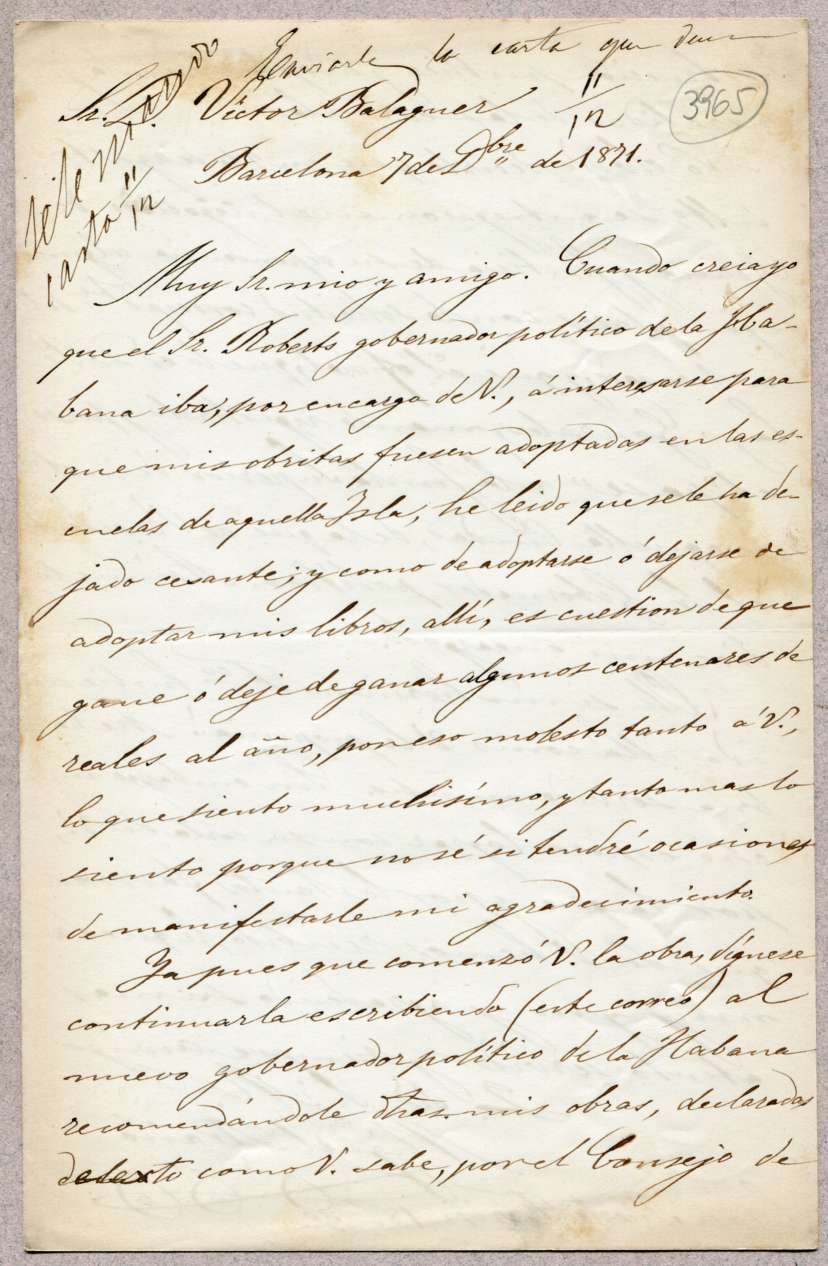 Enviarle la carta que
11/12
3965
se le mando
carta 11/12
Sr. D. Victor Balaguer
Barcelona 7 de Dbre de 1871.
Muy Sr. mio y amigo. Cuando creia yo
que el Sr. Roberts gobernador político de la Ha-
bana iba, por encargo de V., á interesarse para
que mis obritas fuesen adoptadas en las es-
cuelas de aquella Isla, he leido que se le ha de-
jado cesante; y como de adoptarse ó dejarse de
adoptar mis libros, allí, es cuestion de que
gane ó deje de ganar algunos centenares de
reales al año, por eso molesto tanto á V.,
lo que siento muchisímo, y tanto mas lo
siento porque no sé si tendré ocasiones
de manifestarle mi agradecimiento.
Ya pues que comenzó V. la obra, dígnese
continuarla escribiendo (este correo) al
nuevo gobernador político de la Habana
recomendándole dhas. mis obras, declaradas
de texto como V. sabe, por el Consejo de